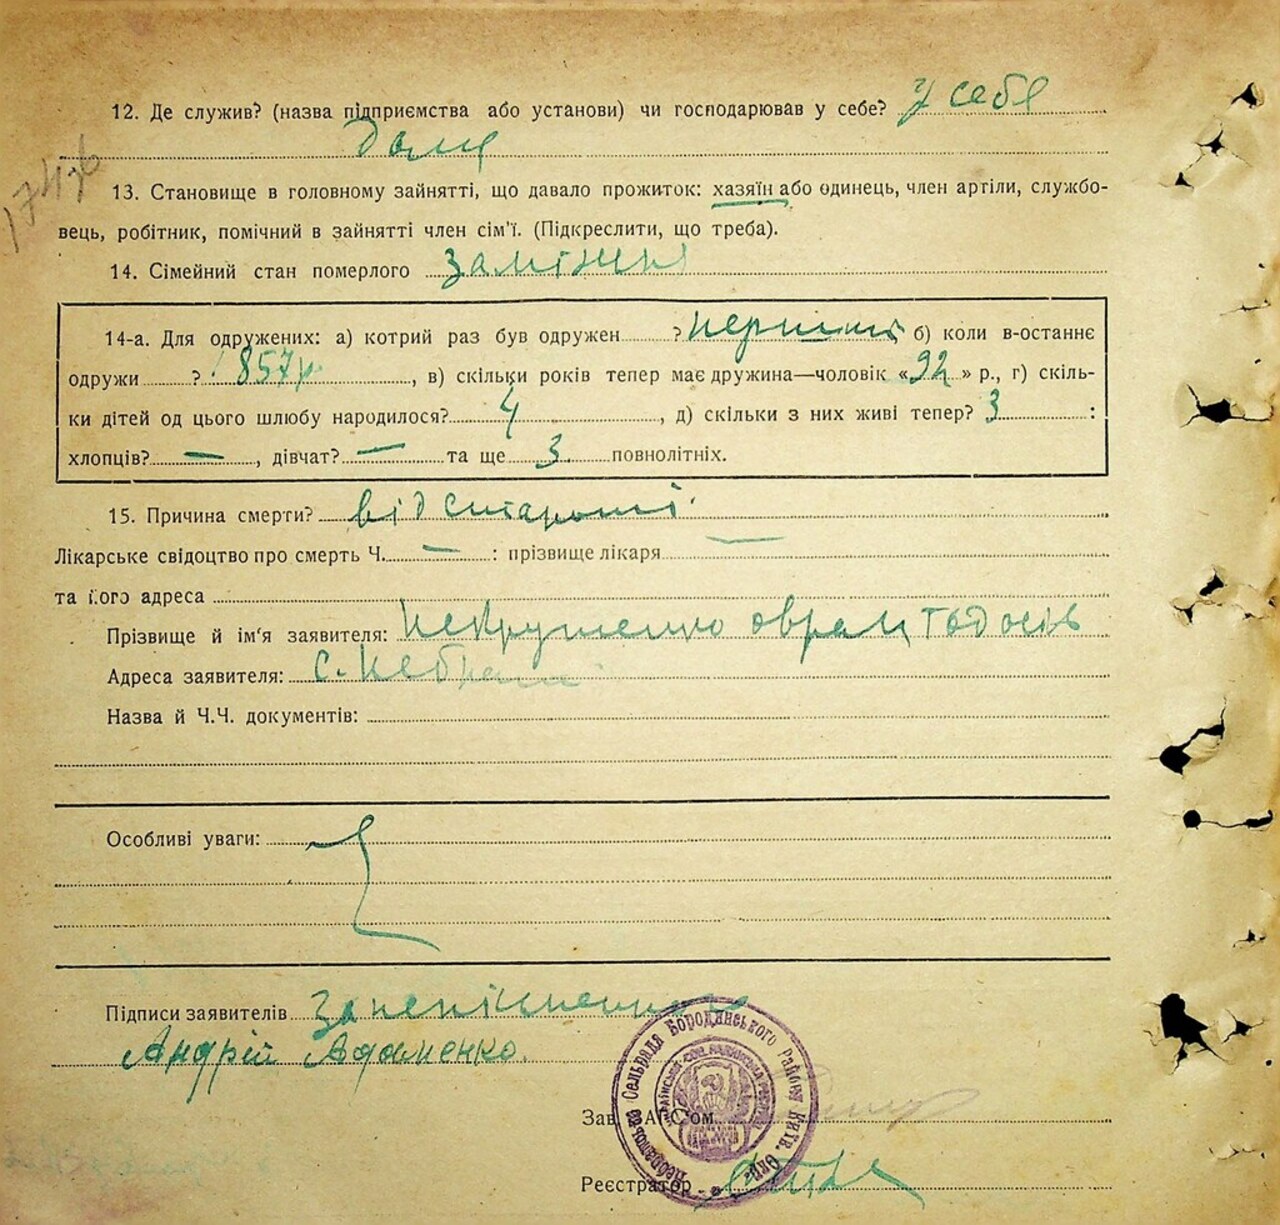 12. Де служив? (назва підприємства або установи) чи господарював у себе? у себе
Дома
1747б
13. Становище в головному зайнятті, що давало прожиток: хазяїн або одинець, член артіли, службо-
вець, робітник, помічний в зайнятті член сім'ї. (Підкреслити, що треба).
14. Сімейний стан померлого заміжні
14-а. Для одружених: а) котрий раз був одружен ? перший б) коли в-останнє
одружи ? 1857р , в) скільки років тепер має дружина—чоловік «92» р., г) скіль-
ки дітей од цього шлюбу народилося? 4 , д) скільки з них живі тепер? 3 :
хлопців? — , дівчат? — та ще 3 повнолітніх.
15. Причина смерти? від старости
Лікарське свідоцтво про смерть Ч. — : прізвище лікаря —
та його адреса
Прізвище й ім'я заявителя: Тодосів
Адреса заявителя: с. Небрат
Назва й Ч.Ч. документів:
Особливі уваги:
Підписи заявителів За неписьменних
Андрій Адаменко.
Небратська Сельрада Бородянського Району Київ. Окр.
Зав. ЗАГСом
Реєстратор